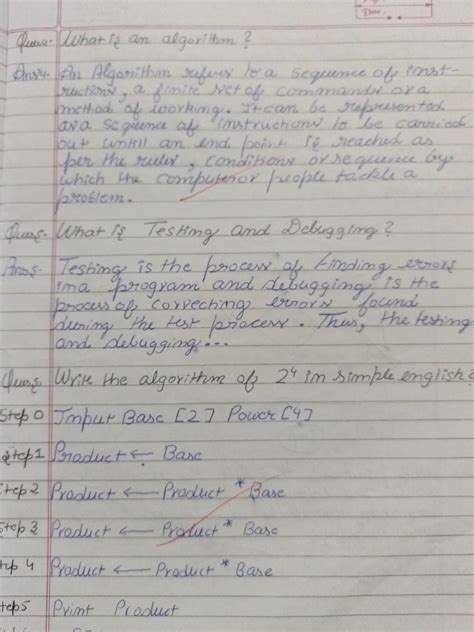 Date :
Ques4. What is an algorithm?
Ans4. An Algorithm refers to a sequence of inst-
ructions, a finite set of commands or a
method of working. It can be represented
as a sequence of instructions to be carried
out untill an end point is reached as
per the rules, conditions or sequence by
which the computer or people tackle a
problem.
Ques5. What is Testing and Debugging?
Ans5. Testing is the process of finding errors
in a program and debugging is the
process of correcting errors found
during the test process. Thus, the testing
and debugging...
Ques6. Write the algorithm of 2⁴ in simple english?
Step 0 Input Base [2] Power [4]
Step1 Product ← Base
Step 2 Product ← Product * Base
Step 3 Product ← Product * Base
Step 4 Product ← Product * Base
Step5 Print Product